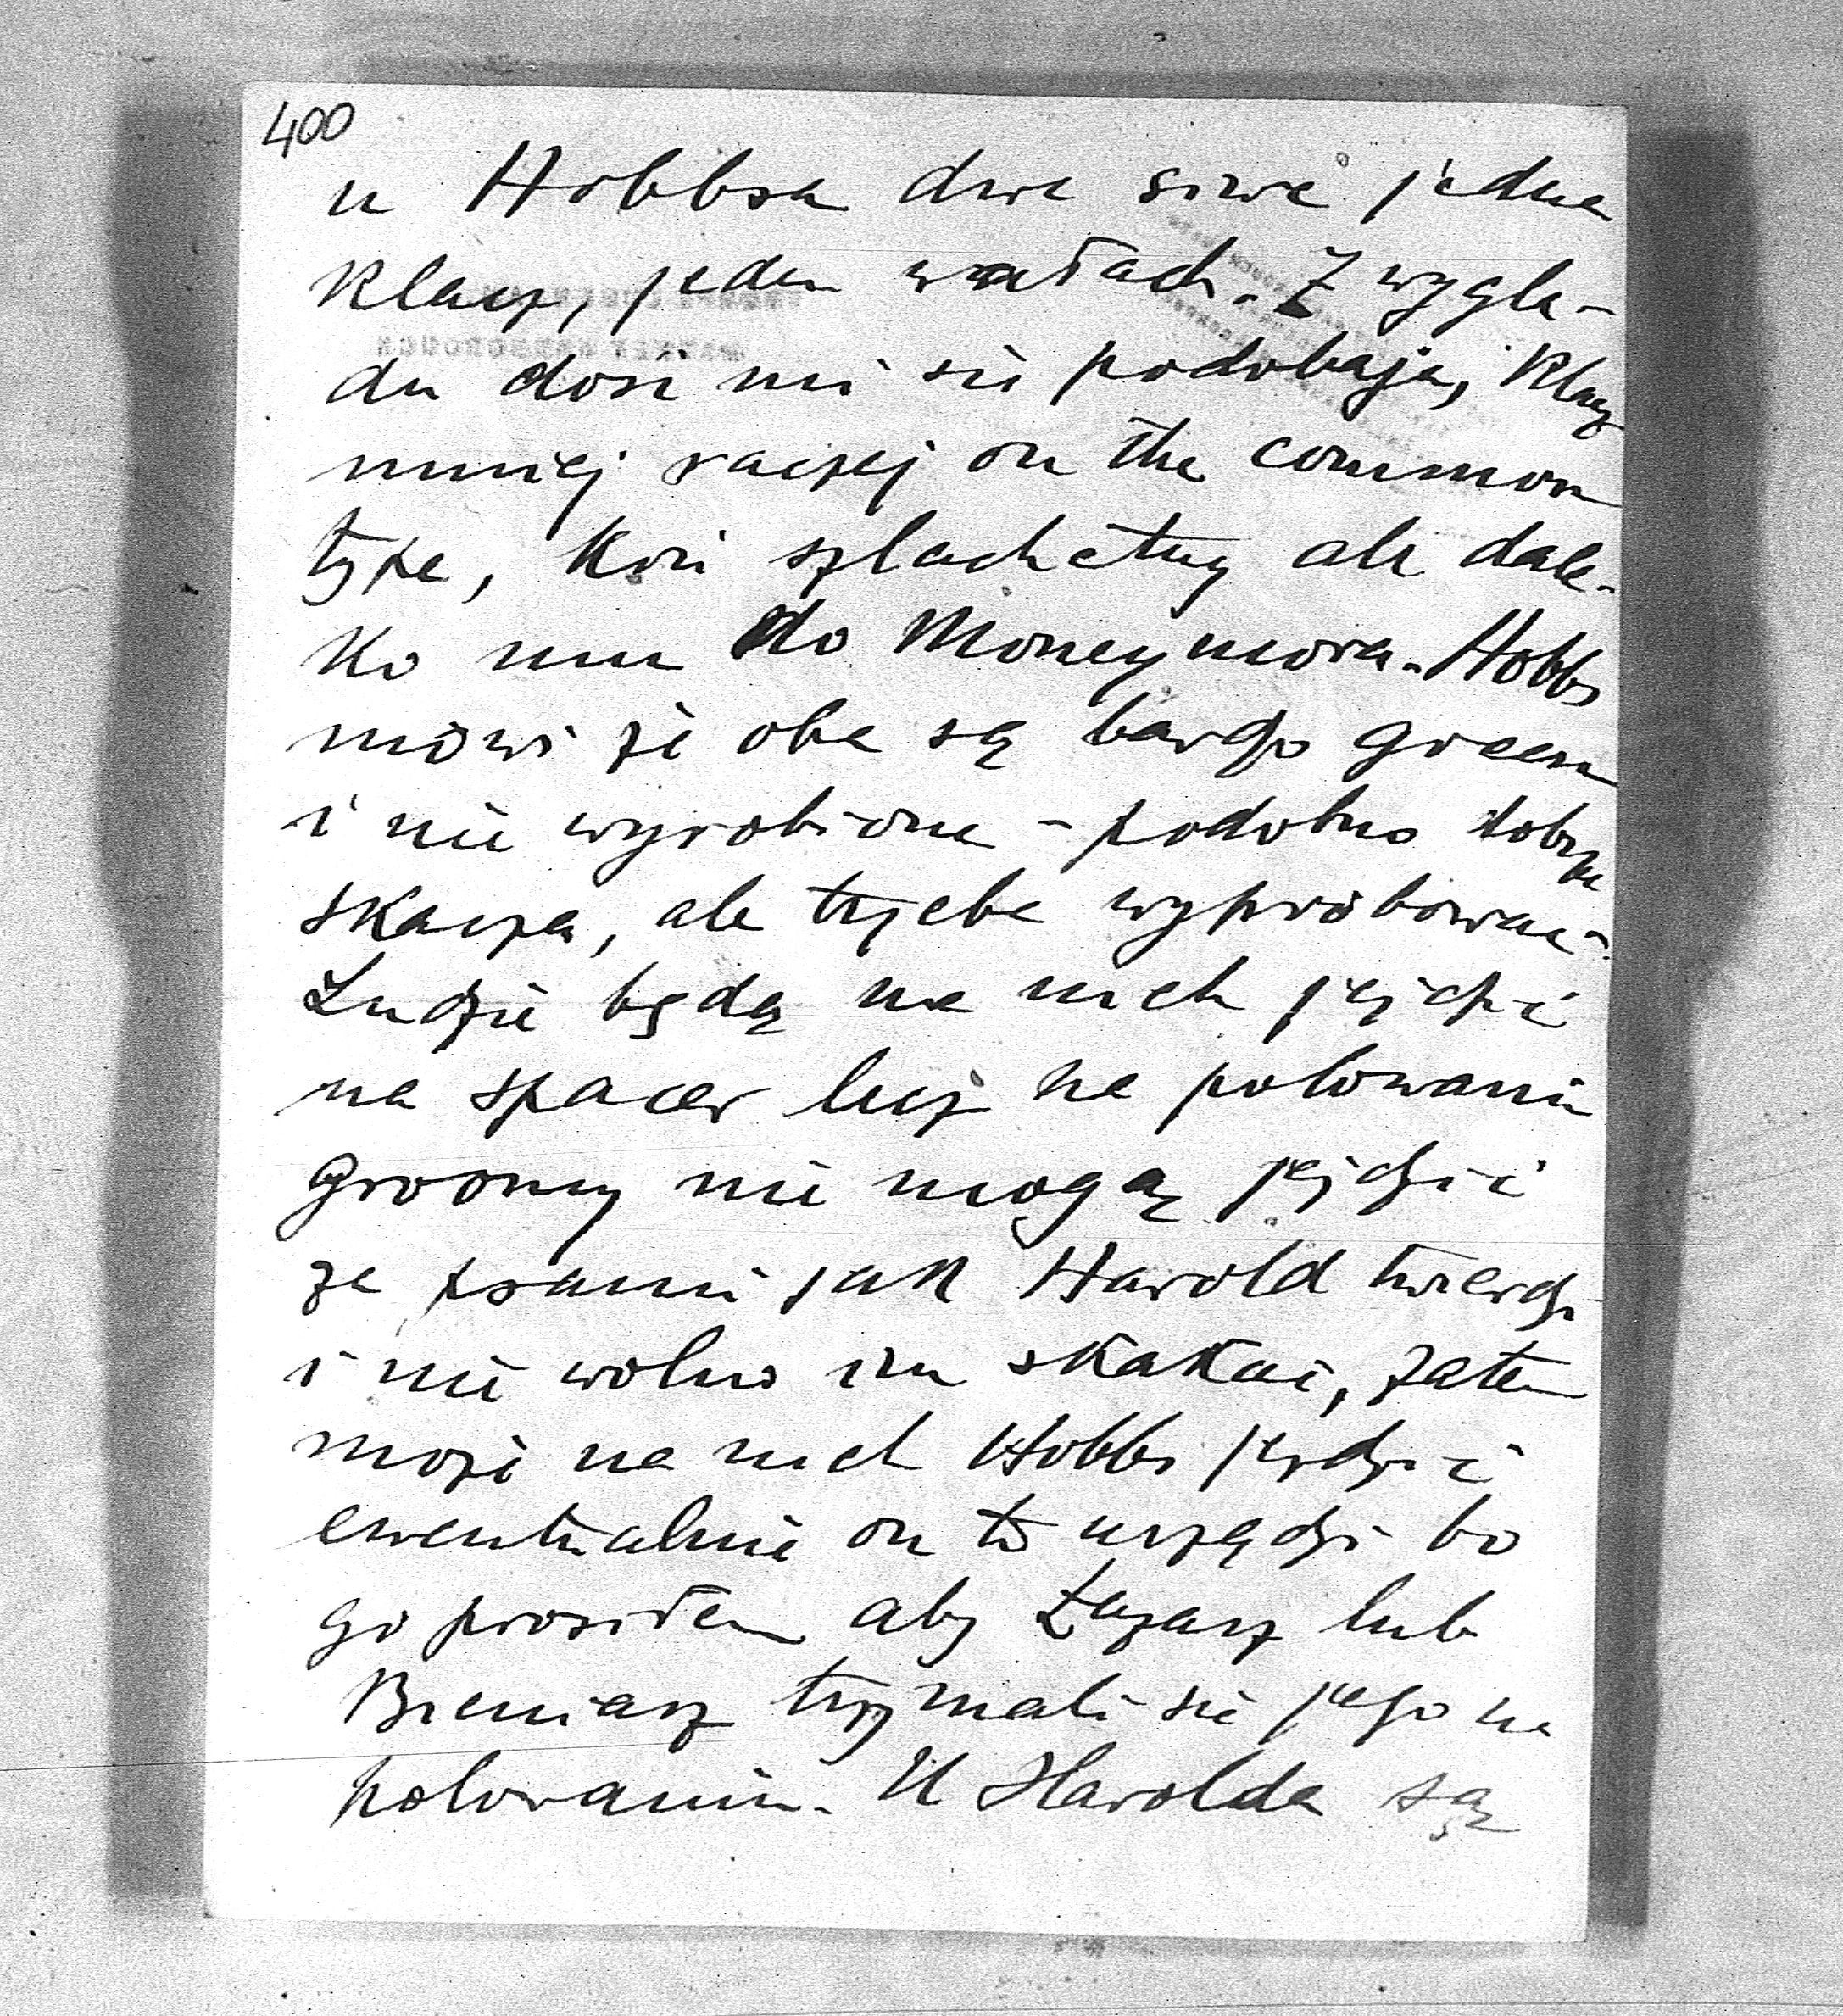 400
u Hobbsa dwa siwe jedna
klacz, jeden wałach. Z wyglą-
du dosć mi się podobają, klacz
mniej raczej on the common
type, koń szlachetny ale dale-
ko mu do Moneymora. Hobbs
mówi że oba są bardzo green
i nie wyrobione - podobno dobrze
skaczą, ale trzeba wypróbować.
Ludzie będą na nich jeździć
na spacer lecz na polowaniu
Groomy nie mogą jeździć
za psami jak Harold twierdzi
i nie wolno im skakać, zatem
może na nich Hobbs jeździć
ewentualnie on to urządzi bo
go prosiłem aby Łazarz lub
Bieniasz trzymali się jego na
polowaniu. U Harolda są